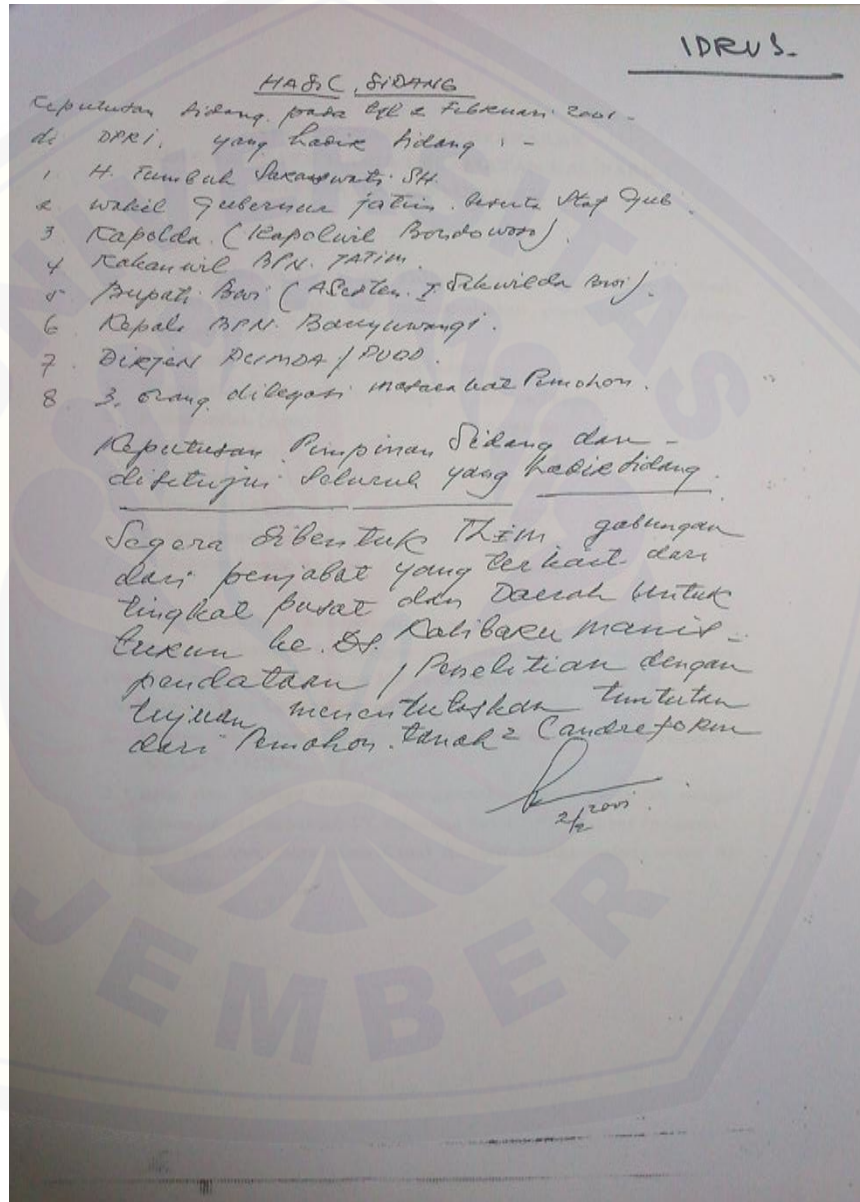 IDRUS.
HASIL SIDANG
Keputusan Sidang pada tgl 2 Februari 2001 -
di DPRI, yang hadir Sidang : -
1 H. Tumbuh SH.
2 Wakil Gubernur Jatim. beserta Staf Gub.
3 Kapolda. (Kapolwil Bondowoso).
4 Kakanwil BPN. JATIM.
5 Bupati Bwi (Asisten I Sekwilda Bwi).
6 Kepala BPN. Banyuwangi.
7. DIRJEN PUMDA / PUOD.
8 3. orang dilegasi masarakat Pemohon.
Keputusan Pimpinan Sidang dan -
disetujui Seluruh yang hadir Sidang.
Segera dibentuk gabungan
dari penjabat yang terkait dari
tingkat pusat dan Daerah untuk
turun ke. DS. Kalibaru manis -
pendataan / Penelitian dengan
tujuan menentutaskan tuntutan
dari Pemohon. tanah2 Landreform
2/2 2001.
UNIVERSITAS
JEMBER